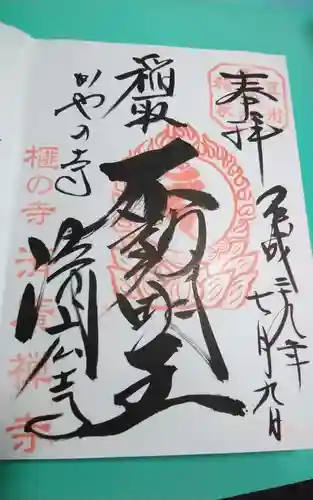 奉拝
平成二十九年
七月九日
稲取
不動明王
かやの寺
済広寺
榧の寺 済廣禅寺